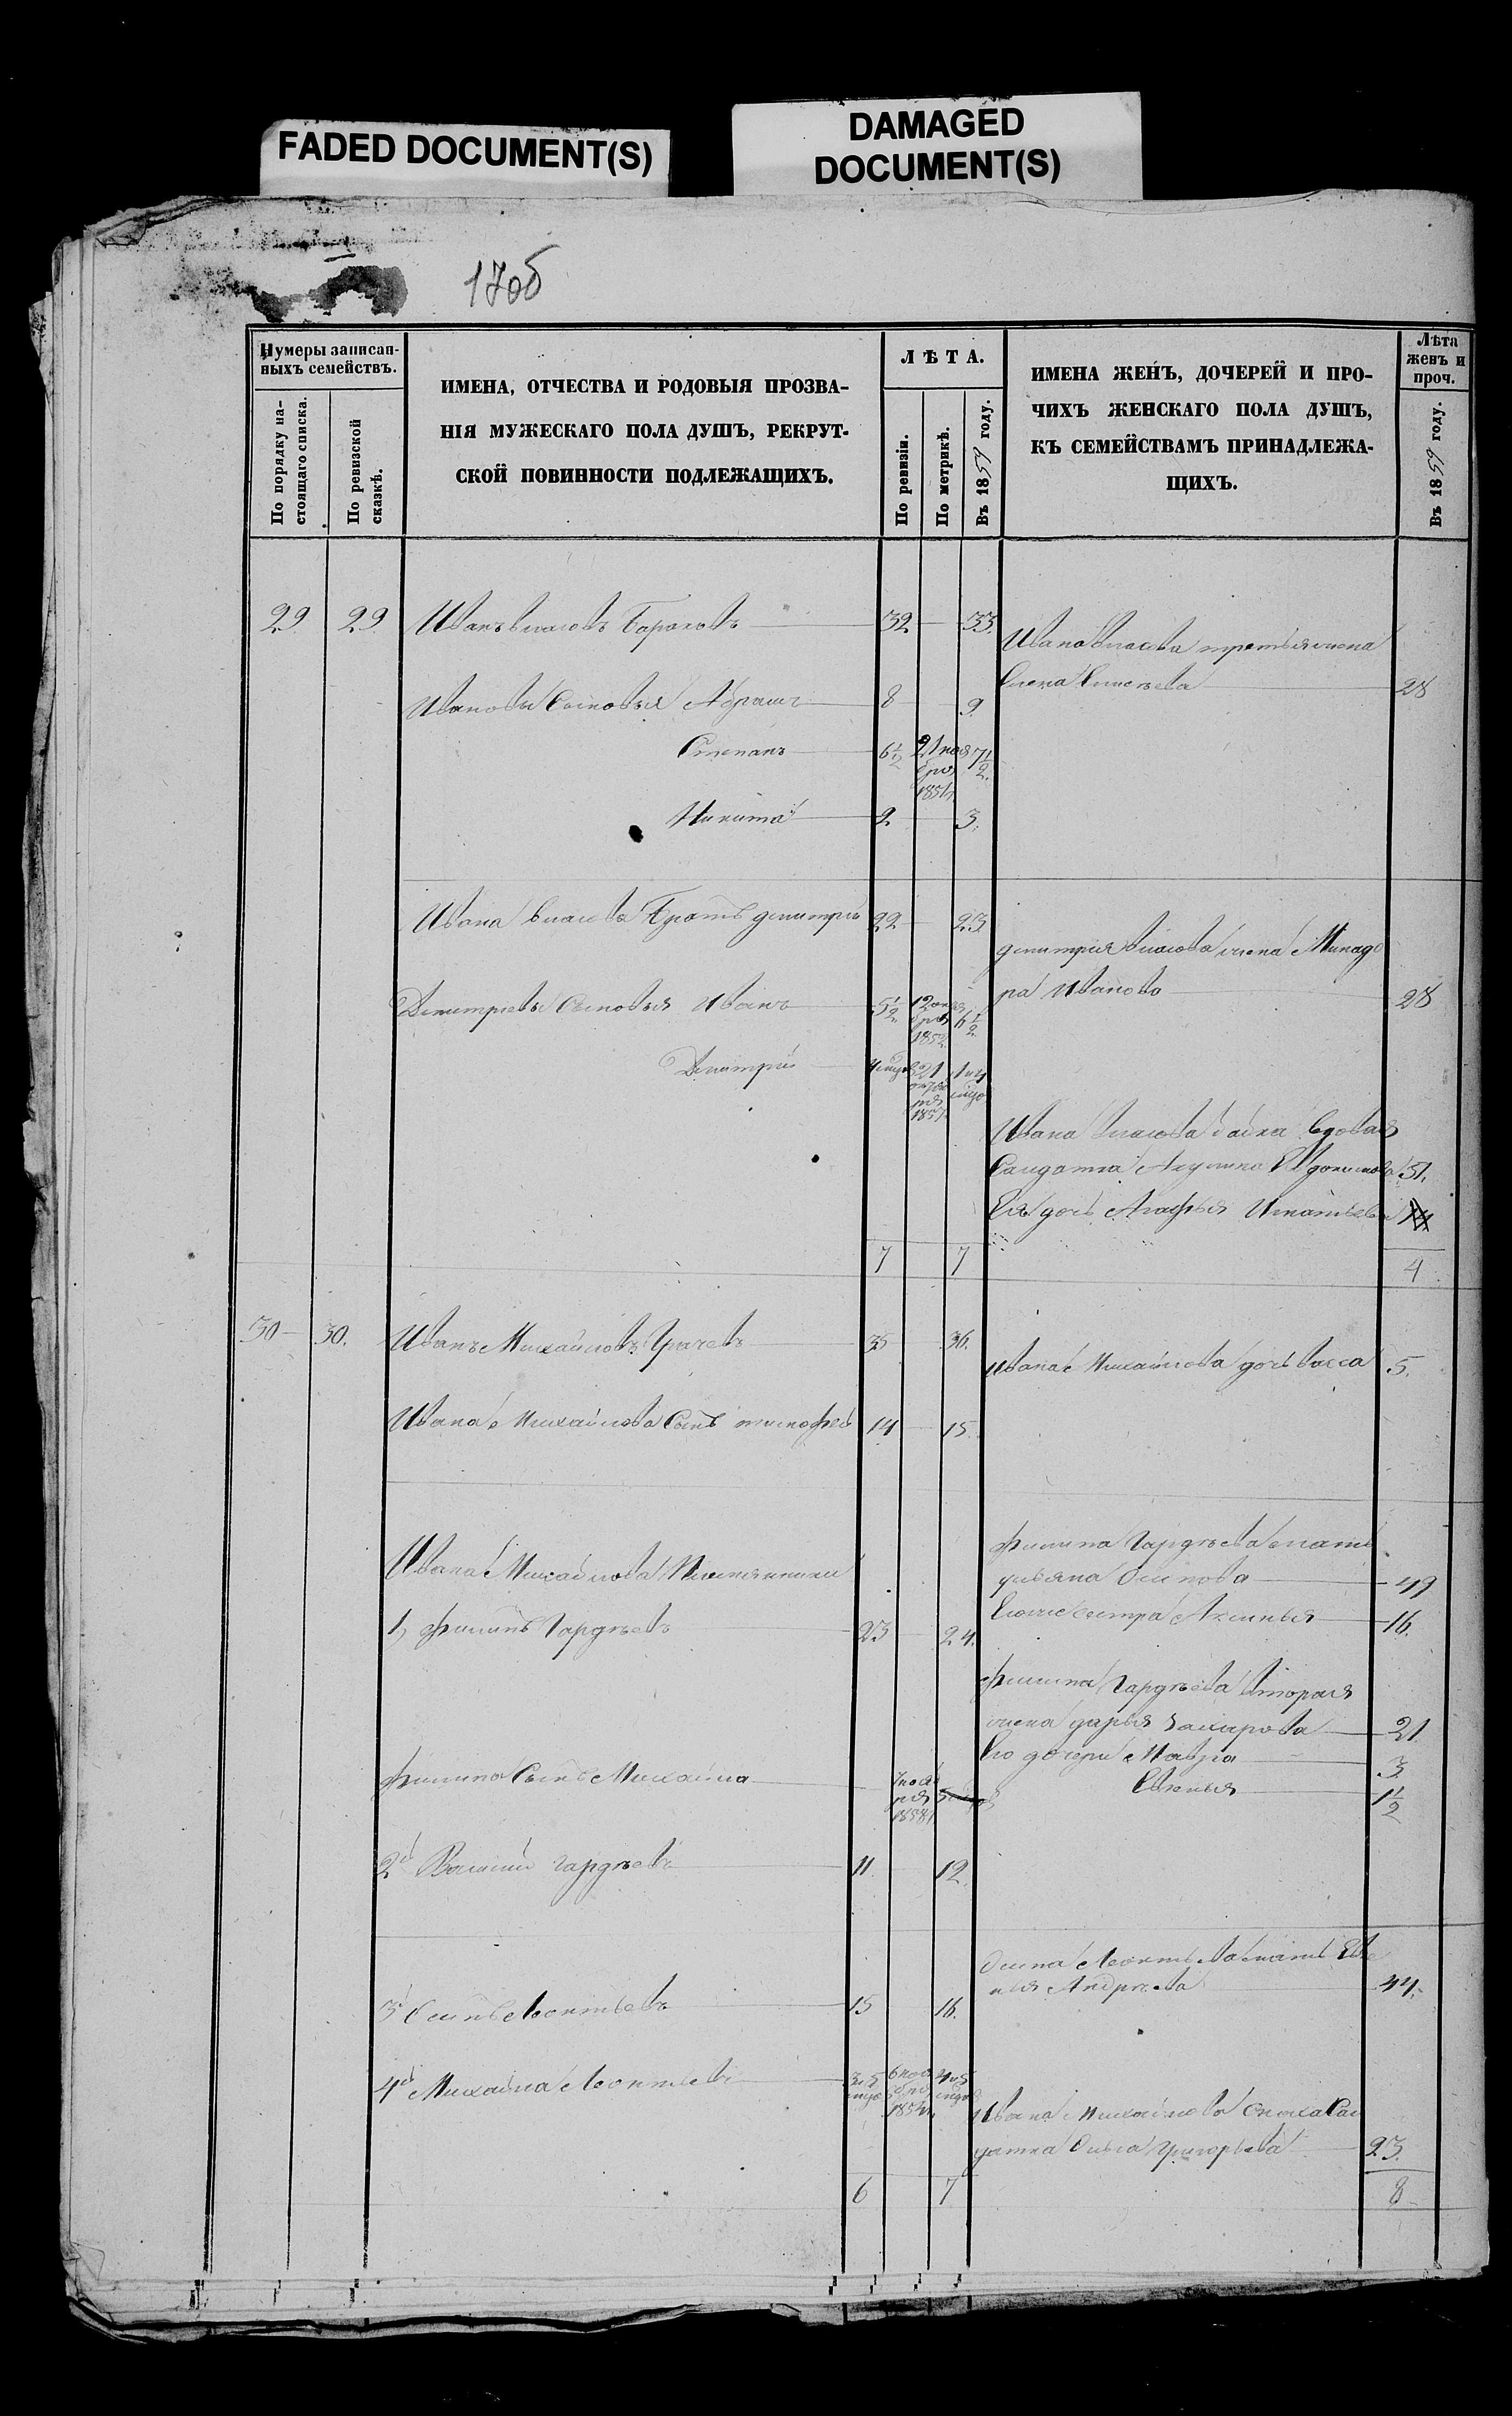 FADED DOCUMENT(S)
DAMAGED
DOCUMENT(S)
170б
Нумеры записан-
ныхъ семействъ.
По порядку на-
стоящаго списка.
По ревизской
сказкѣ.
ИМЕНА, ОТЧЕСТВА И РОДОВЫЯ ПРОЗВА-
НІЯ МУЖЕСКАГО ПОЛА ДУШЪ, РЕКРУТ-
СКОЙ ПОВИННОСТИ ПОДЛЕЖАЩИХЪ.
ЛѢТА.
По ревизіи.
По метрикѣ.
Въ 1859 году.
ИМЕНА ЖЕНЪ, ДОЧЕРЕЙ И ПРО-
ЧИХЪ ЖЕНСКАГО ПОЛА ДУШЪ,
КЪ СЕМЕЙСТВАМЪ ПРИНАДЛЕЖА-
ЩИХЪ.
Лѣта
женъ и
проч.
Въ 1859 году.
29 29 Иванъ Власовъ 32 33.
Ивана Власова третья жена
Елена 28
Ивановы Сыновья Абрамъ 8 9.
Степанъ 6½ 21 ноября 185 7½.
Никита 2 3.
Ивана Власова Братъ дмитрій 22 23
дмитрія Власова жена Минадо
ра Иванова 28
Дмитріевы Сыновья Иванъ 5½. 12 185 6½
Дмитрій 21 1857
Ивана Власова вдовая
Салдатка Акулина Евдокимова 51.
Ея дочь Агафья Игнатьева
7 7 4
30 30. Иванъ Михайловъ Грачевъ 35 36.
Ивана Михайлова дочь Васса 5.
Ивана Михайлова Сынъ тимофей 14 15.
Ивана Михайлова Племянники
Филипа Гардѣева мать
ульяна Осипова 49
1, Филипъ Гардѣевъ 23 24.
Егоже сестра Аксинья 16.
Филипа Гардѣева вторая
жена дарья Захарова 21
Его дочери Мавра 3
1½
Филипа Сынъ Михайла ноября 1858
2й Василій гардѣевъ 11. 12
Осипа Леонтьева мать
Андрѣева 44.
3й Осипъ Леонтьевъ 15 16.
4й Михайла Леонтьевъ 3 и 5 6 ноября 185 4 и 5
Ивана Михайлова сноха Сал
датка Ольга Григорьева 23.
6 7 8